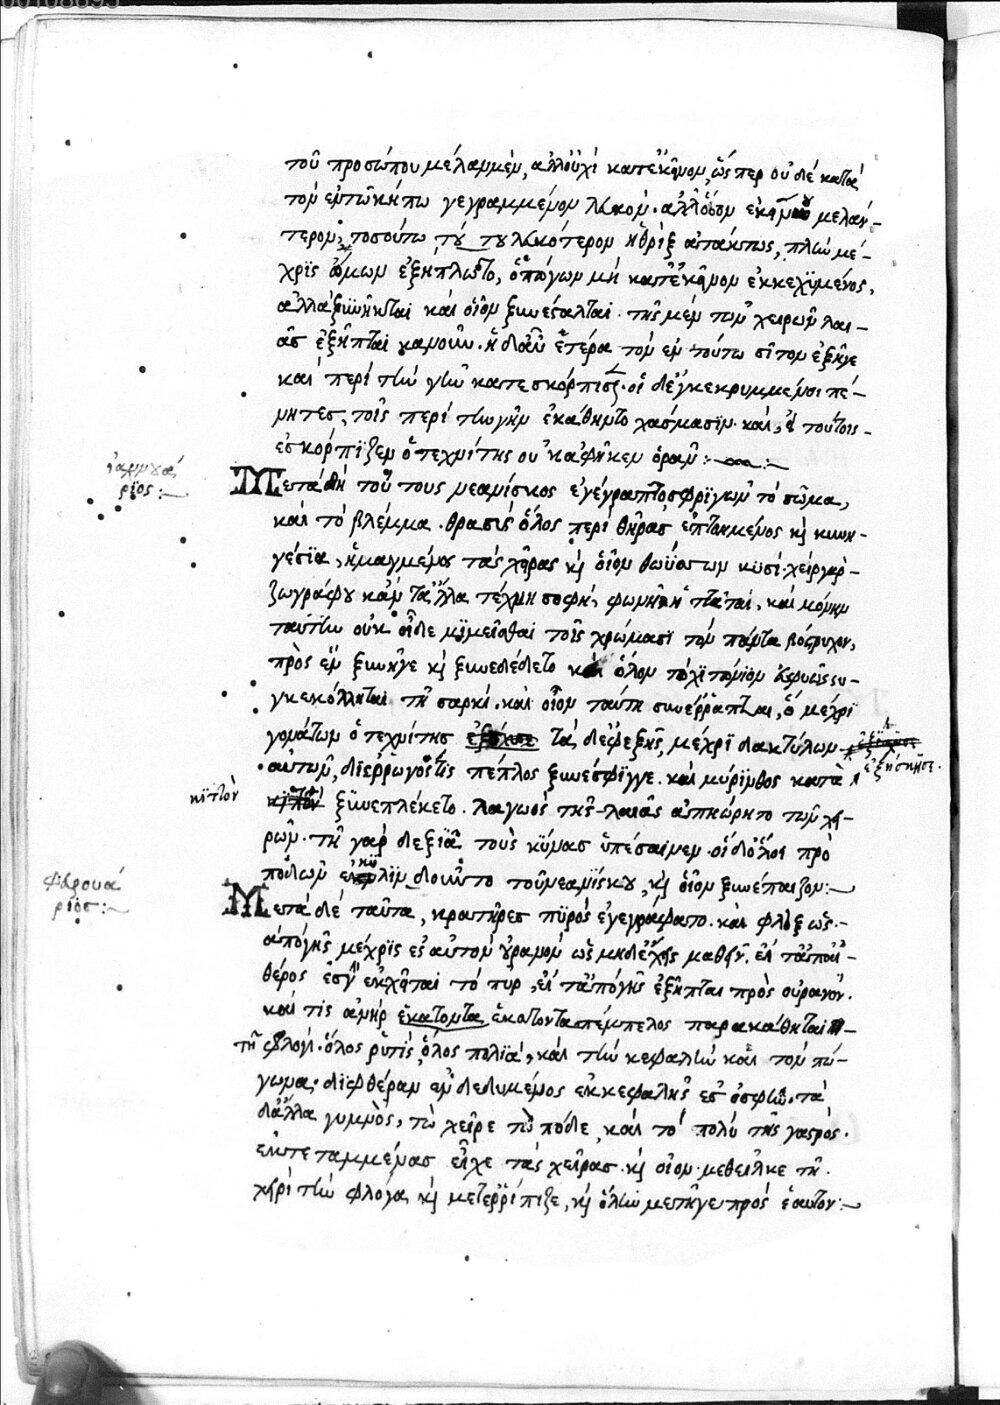 τοῦ προσώπου μέλαμμὲν, ἀλλοὐχὶ κατ' ἐκεῖνον, ὥσπερ οὐδὲ κατὰ
τὸν ἐν τῶ κήπω γεγραμμένον λευκὸν. ἀλλ' ὅσον ἐκείνου μελάν-
τερον, τοσούτω τούτου λευκότερον ἡ θρὶξ ἀτάκτως, πλὴν μέ-
χρϊς ὤμων ἐξήπλωτο, ὁ πώγων μὴ κατ' ἐκεῖνον ἐκκεχϋμένος,
ἀλλὰ ξυνῆκται καὶ οἷον ξυνέσταλται. τῆς μὲν τῶν χειρῶν λαι-
ᾶς ἐξῆπται ἡ δ' αὖ ἑτέρα τὸν ἐν τούτω σῖτον ἐξῆγε
καὶ περὶ τὴν γῆν κατεσκόρπιζε. οἱ δ' ἐγκεκρυμμένοι πέ-
νητες, τοῖς περὶ τὴν γῆν ἐκάθηντο χάσμασϊν. καὶ, ἃ τούτοις
ἐσκόρπϊζεν ὁ τεχνίτης οὐκ ἀφῆκεν ὁρᾶν:
ἰαννουά
ρϊος:
Μετὰ δὴ τούτους νεανίσκος ἐγέγραπτο σφρϊγῶν τὸ σῶμα,
καὶ τὸ βλέμμα. θρασὺς ὅλος περὶ θήρας ἐπτοημένος κỳ κυνη-
γέσϊα, ἡμαγμένος τὰς χεῖρας κỳ οἷον θωΰσσων κυσὶ. χεὶρ γὰρ
ζωγράφου κἂν τἄλλα τέχνη σοφὴ, φωνὴν πλάττει, καὶ μόνην
ταύτην οὐκ οἶδε μϊμεῖσθαι τοῖς χρώμασι τὸν πάντα βόστρυχον,
πρὸς ἓν ξυνῆγε κỳ ξυνεδέδετο καὶ ὅλον τὸ χϊτώνϊον
γκεκόλληται τῆ σαρκὶ. καὶ οἷον ταύτη συνέρραπται, ὃ μέχρι
γονάτων ὁ τεχνίτης τὰ δ' ἐφεξῆς, μέχρι δακτύλων
ἐξήσκησε.
αὐτῶν, διερρωγός τις πέπλος ξυνέσφϊγγε. καὶ μύρϊνθος κατὰ
κϊττὸν
κϊττὸν ξυνεπλέκετο. λαγωὸς τῆς λαιᾶς ἀπηώρητο τῶν χει-
ρῶν. τῆ γὰρ δεξϊᾶ τοὺς κύνας ὑπέσαινεν. οἱ δ' ὅλοι πρὸ
ποδῶν ἐκυλινδοῦντο τοῦ νεανΐσκου, κỳ οἷον ξυνέπαιζον:
φευρουά
ρϊος:
Μετὰ δὲ ταῦτα, κρατῆρες πϋρὸς ἐγεγράφατο. καὶ φλὸξ ὡς
ἀπὸ γῆς μέχρϊς ἐς αὐτὸν οὐρανὸν ὡς μηδ' ἔχειν μαθεῖν. εἰ τἀπ' αἰ-
θέρος ἐς γῆν ἐκχεῖται τὸ πυρ, εἰ τ' ἀπὸ γῆς ἐξῆπται πρὸς οὐρανὸν.
καὶ τὶς ἀνὴρ ἑκατοντα ἑκατονταπέμπελος παρακάθηται
τῆ φλογὶ. ὅλος ῥυτὶς, ὅλος πολϊὰ, καὶ τὴν κεφαλὴν καὶ τὸν πώ-
γωνα. δϊφθέραν ἐνδεδυμένος ἐκ κεφαλῆς ἐς ὀσφὺν, τὰ
δ' ἄλλα γυμνὸς, τὼ χεῖρε τὼ πόδε, καὶ τὸ πολὺ τῆς γαστρὸς.
ἐκτεταμμένας εἶχε τὰς χεῖρας. κỳ οἷον μεθεῖλκε τῆ
χειρὶ τὴν φλόγα κỳ μετερρίπιζε, κỳ ὅλην μετῆγε πρὸς ἑαυτὸν: